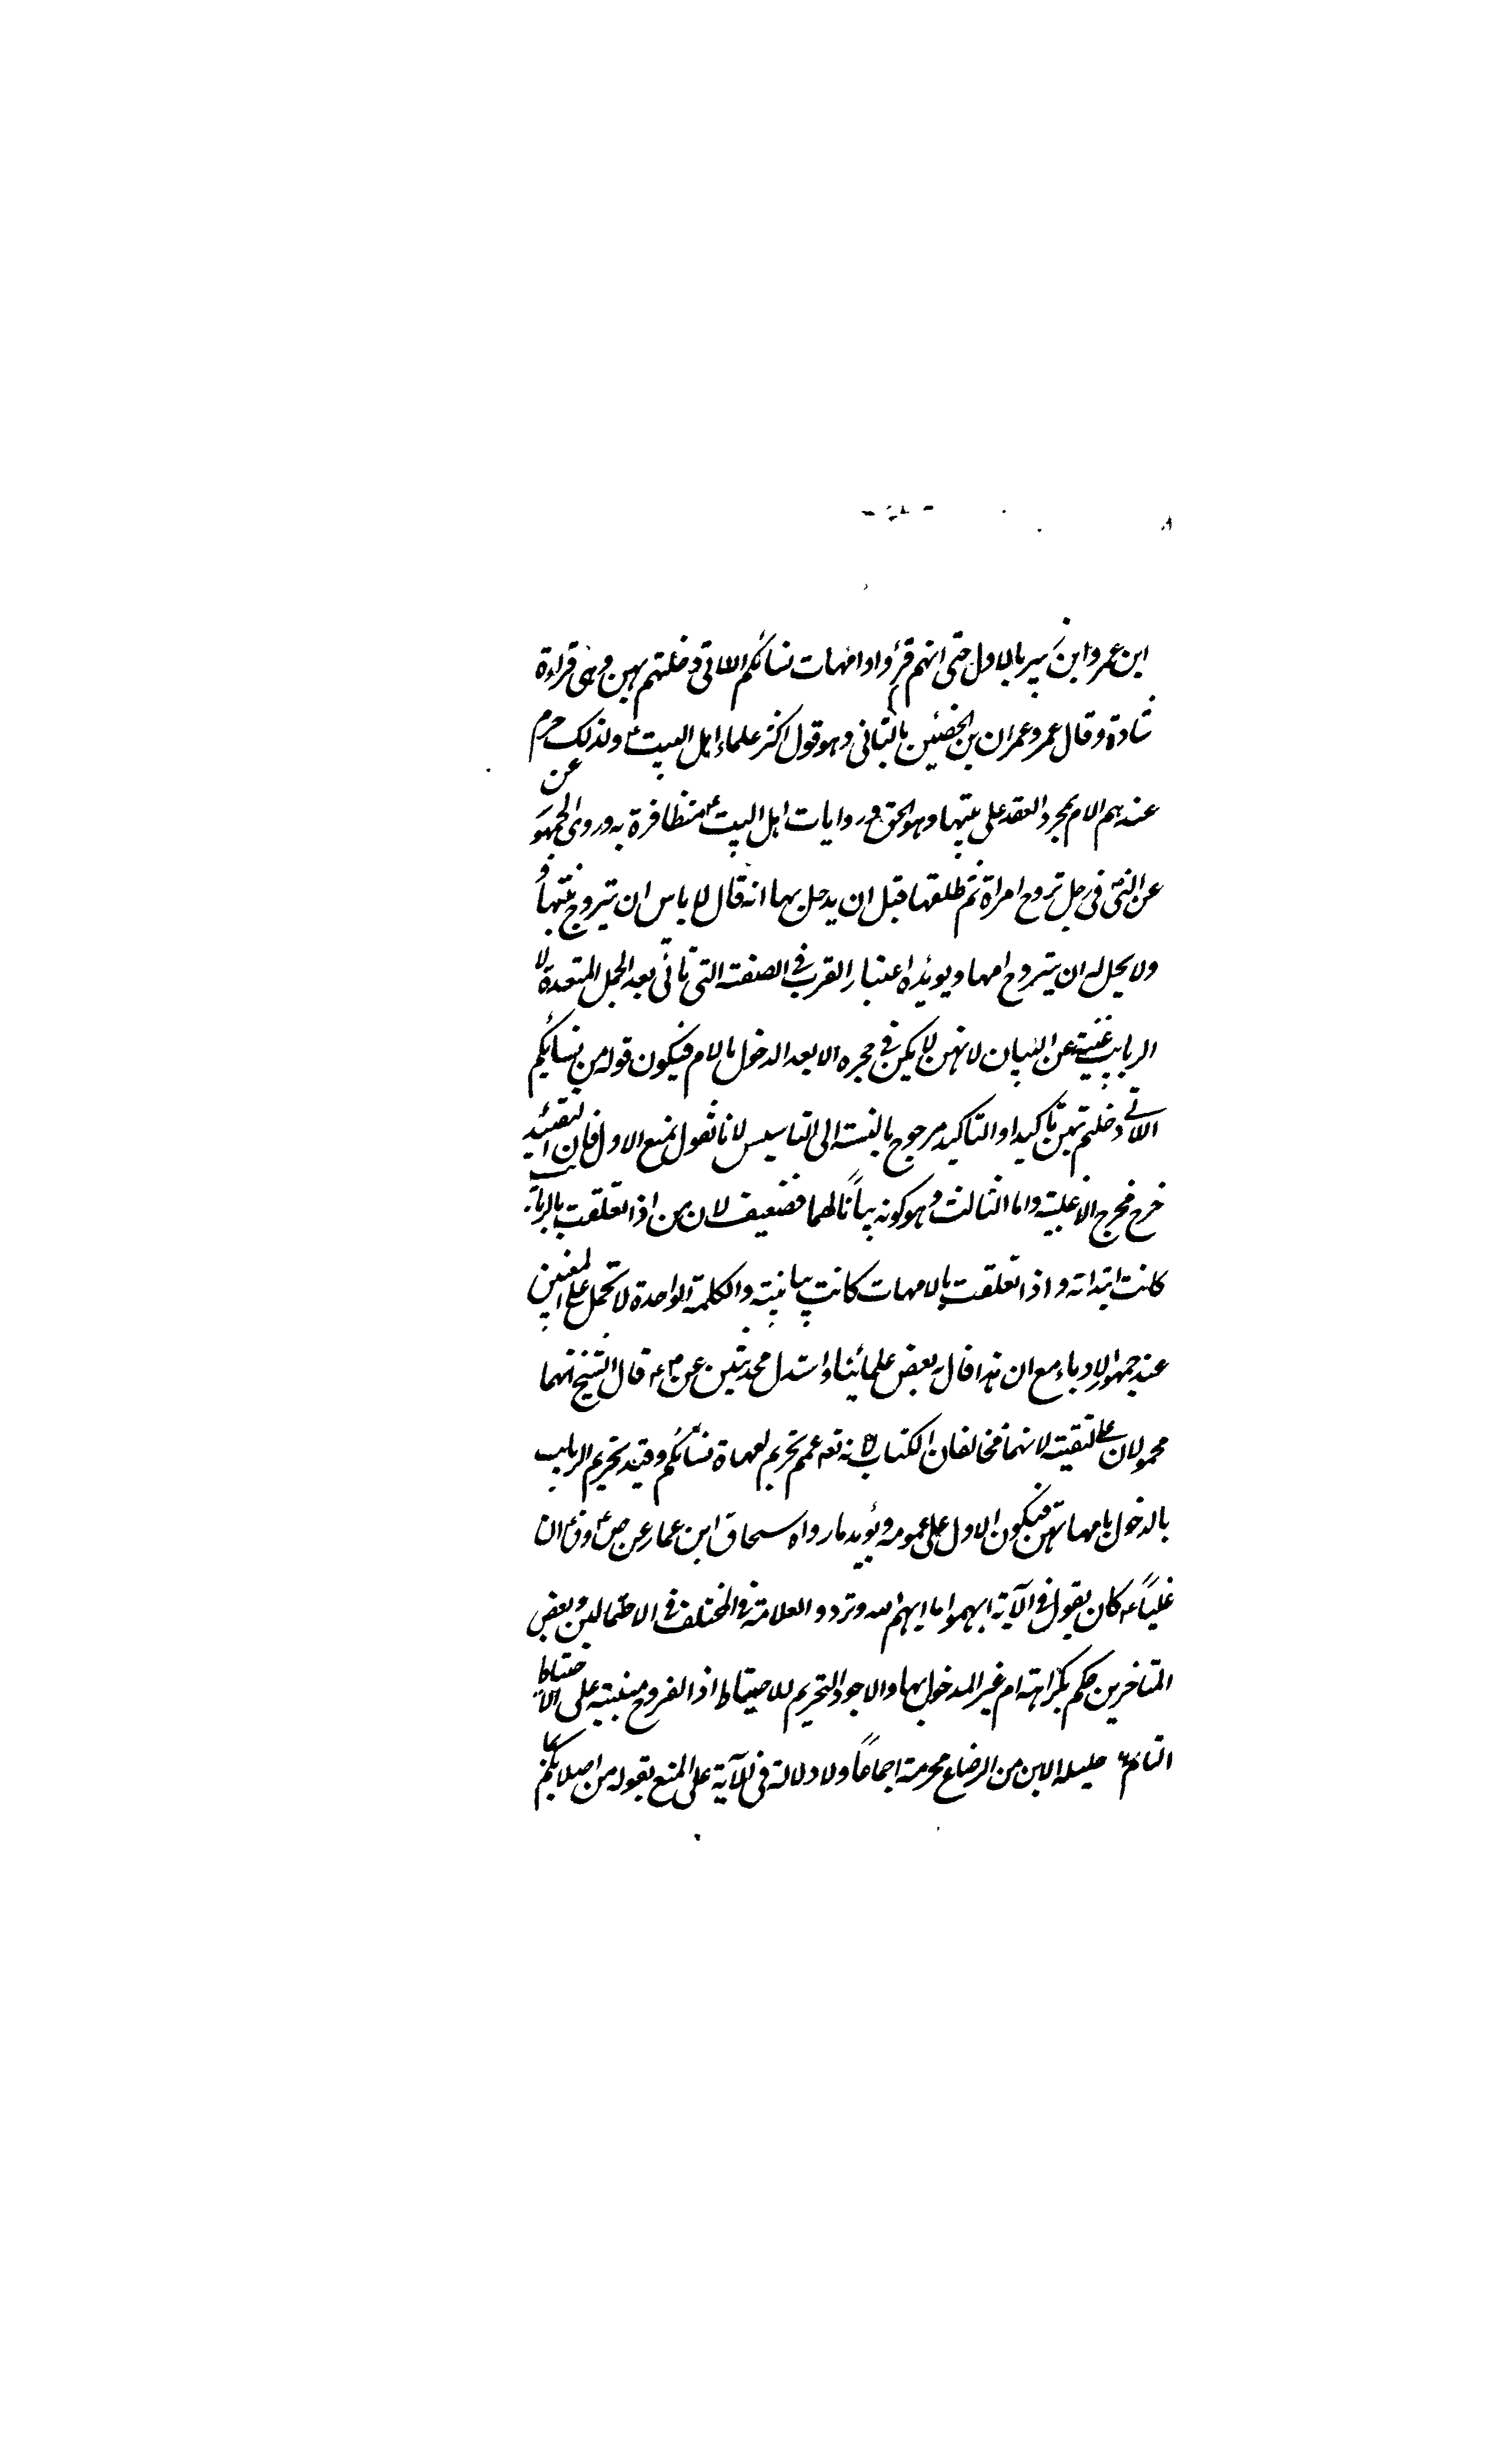 ابن عمر وابن بير بالاول حتى انهم قرؤا وامهات نسائكم اللاتى دخلتم بهن وهى قراءة
شاذة وقال عمر وعمران بن الحصين بالثانى وهو قول اكثر علماء اهل البيت ع ولذلك حرم
عندهم الام بمجرد العقد على بنتها وهو الحق وروايات اهل البيت ع متظافرة به وروى الجمهور عن
عن النبى فى رجل تزوج امراة ثم طلقها قبل ان يدخل بها انه قال لا باس ان يتزوج بنتها و
ولا يحل له ان يتزوج امها ويؤيده اعتبار القرب فى الصفته التى تأتى بعد الجمل المتعددة لا
الربايب غنية عن البيان لانهن لا يكن فى حجره الا بعد الدخول بالام فيكون قوله من نسائكم
اللاتى دخلتم بهن تاكيدا والتاكيد مرجوح بالنسبته الى التاسيس لانا نقول بمنع الاول فان التقئيد
خرج مخرج الاغلبية واما الثالث وهو كونه بيانًا لهما فضعيف لان من اذا تعلقت بالربائب
كانت ابتدائه واذا تعلقت بالامهات كانت بيانيته والكلمة الواحدة لا تحمل على المعنيين
عند جمهور الادباء مع ان هذا قال به بعض علمائنا واستدل بحديثين عن ص ع قال الشيخ انهما
محمولان على التقيته لانهما مخالفان الكتاب لانه تعه عمم تحريم امهاة نسائكم وقيد تحريم الربايب
بالدخول بامهاتهن فيكون الاول على عمومه ويؤيده ما رواه اسحاق ابن عمار عن ص ع وق ع ان
عليًا ع كان يقول فى الآية ابهموا ما ابهم الله وتردد العلامة فى المختلف فى الاحتمالين وبعض
المتاخرين حكم بكراهته ام غير المدخول بها والاجود التحريم للاحتياط اذ الفروج مبنيته على الاحتياط
التام حليلة الابن من الرضاع محرمة اجماعًا ولا دلالة فى الآية على المنع بقوله من اصلابكم